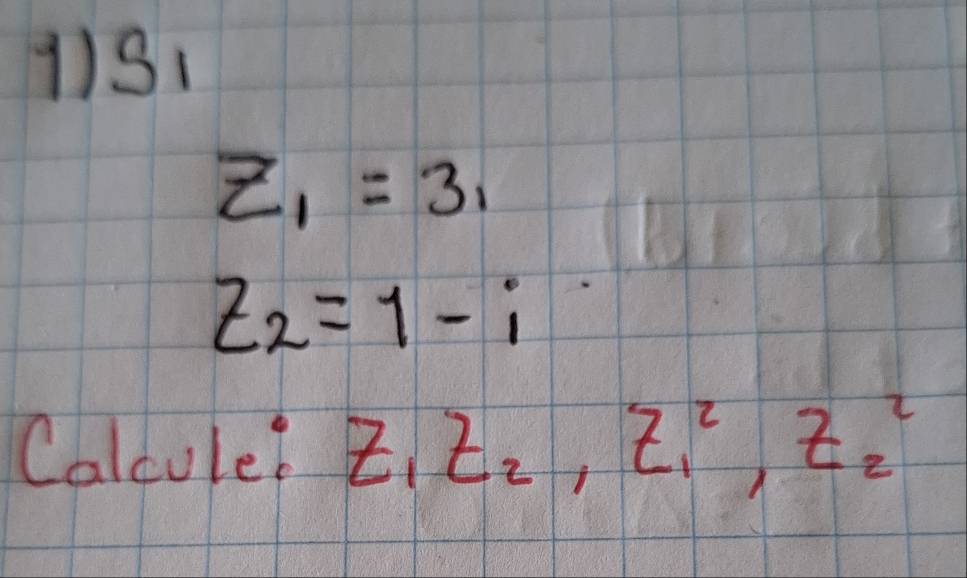 1) Si
Z₁ = 3i
Z₂ = 1 - i
Calcule: Z₁ Z₂, Z₁², Z₂²